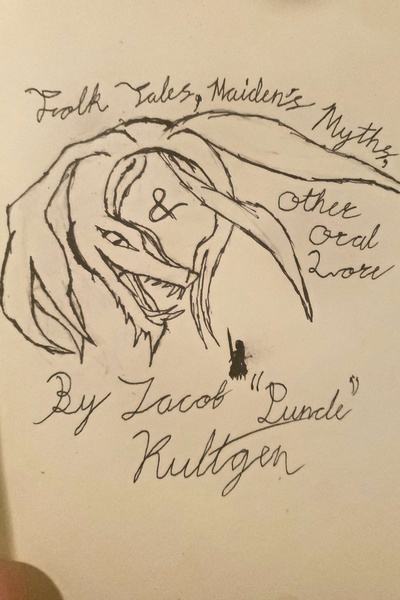 Folk Tales, Maiden's
Myths,
&
Other
Oral
Lore
By Jacob "Puncle"
Kultgen